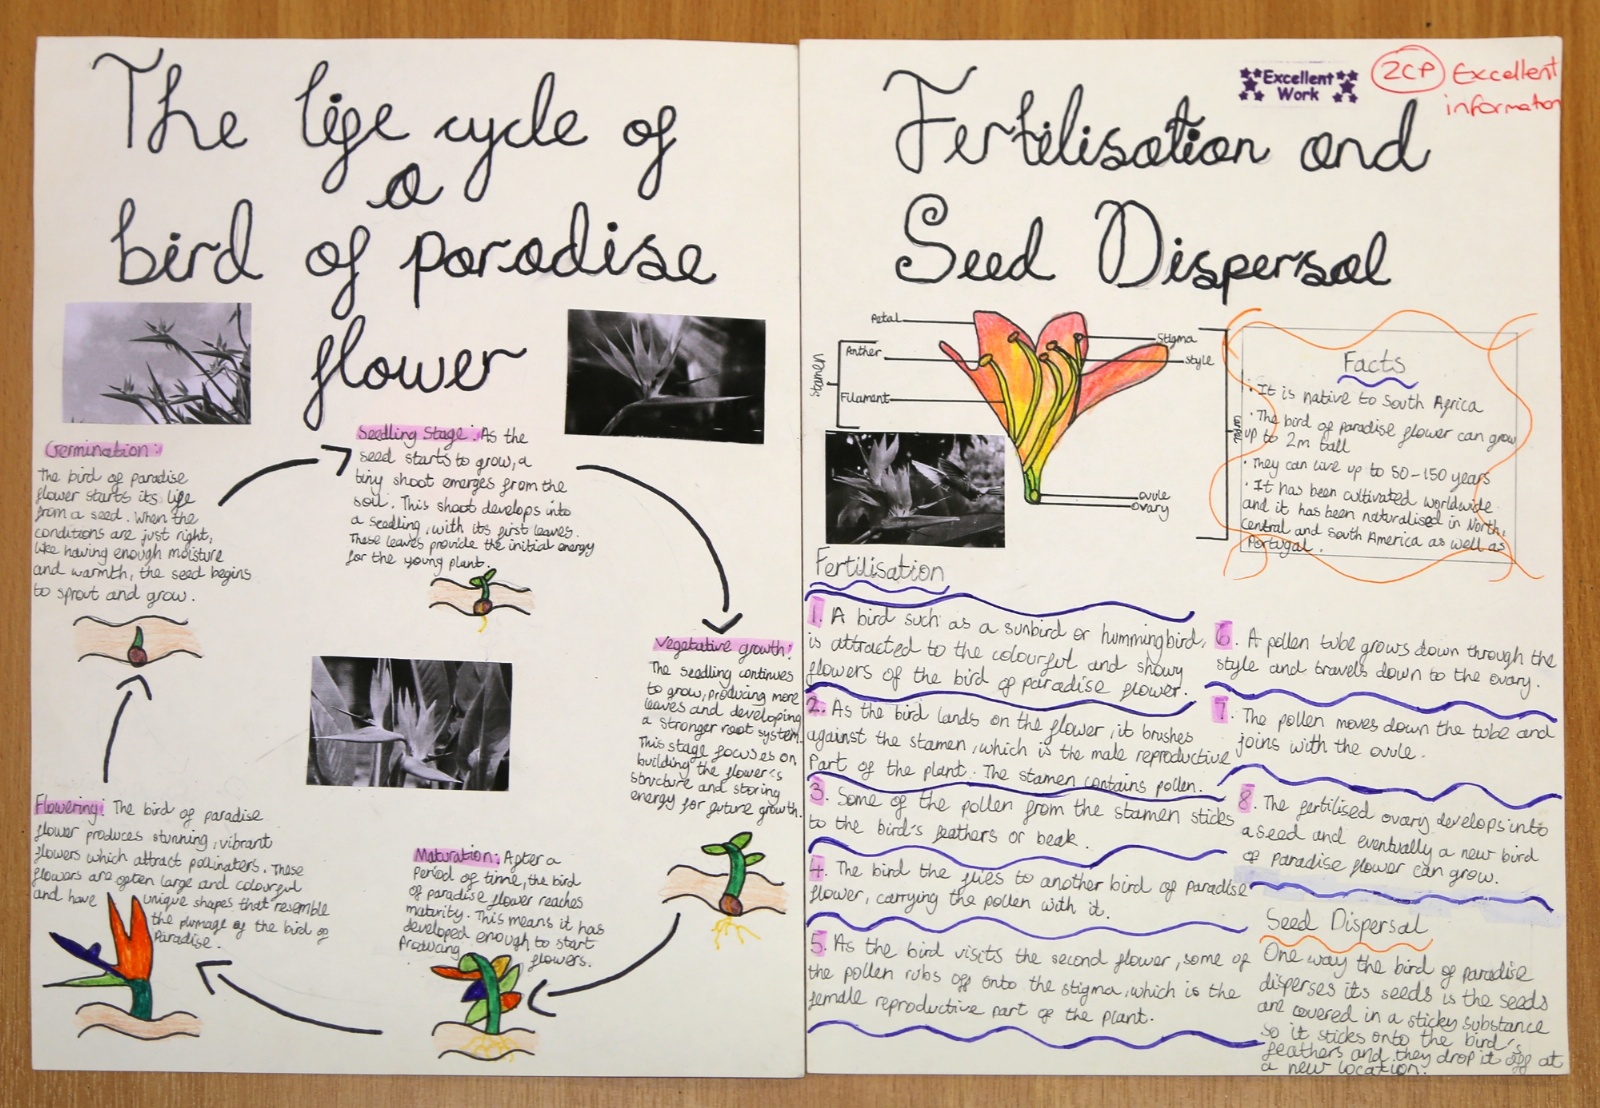 The life cycle of
a
bird of paradise
flower
Germination:
The bird of paradise
flower starts its life
from a seed. When the
conditions are just right,
like having enough moisture
and warmth, the seed begins
to sprout and grow.
Seedling Stage: As the
seed starts to grow, a
tiny shoot emerges from the
soil. This shoot develops into
a seedling, with its first leaves.
These leaves provide the initial energy
for the young plant.
Vegetative growth:
The seedling continues
to grow, producing more
leaves and developing
a stronger root system.
This stage focuses on
building the flower's
structure and storing
energy for future growth.
Maturation: After a
period of time, the bird
of paradise flower reaches
maturity. This means it has
developed enough to start
producing flowers.
Flowering: The bird of paradise
flower produces stunning, vibrant
flowers which attract pollinaters. These
flowers are often large and colourful
and have unique shapes that resemble
the plumage of the bird of
Paradise.
Excellent
Work
2CP Excellent
information
Fertilisation and
Seed Dispersal
Petal
Anther
Stamen
Filament
Stigma
style
ovule
ovary
Facts
· It is native to South Africa
· The bird of paradise flower can grow
up to 2m tall
· They can live up to 50-150 years
· It has been cultivated worldwide
and it has been naturalised in North,
central and South America as well as
Portugal.
Fertilisation
1. A bird such as a sunbird or hummingbird,
is attracted to the colourful and showy
flowers of the bird of paradise flower.
2. As the bird lands on the flower, it brushes
against the stamen, which is the male reproductive
part of the plant. The stamen contains pollen.
3. Some of the pollen from the stamen sticks
to the bird's feathers or beak.
4. The bird the flies to another bird of paradise
flower, carrying the pollen with it.
5. As the bird visits the second flower, some of
the pollen rubs off onto the stigma, which is the
female reproductive part of the plant.
6. A pollen tube grows down through the
style and travels down to the ovary.
7. The pollen moves down the tube and
joins with the ovule.
8. The fertilised ovary develops into
a seed and eventually a new bird
of paradise flower can grow.
Seed Dispersal
One way the bird of paradise
disperses its seeds is the seeds
are covered in a sticky substance
so it sticks onto the bird's
feathers and they drop it off at
a new location.